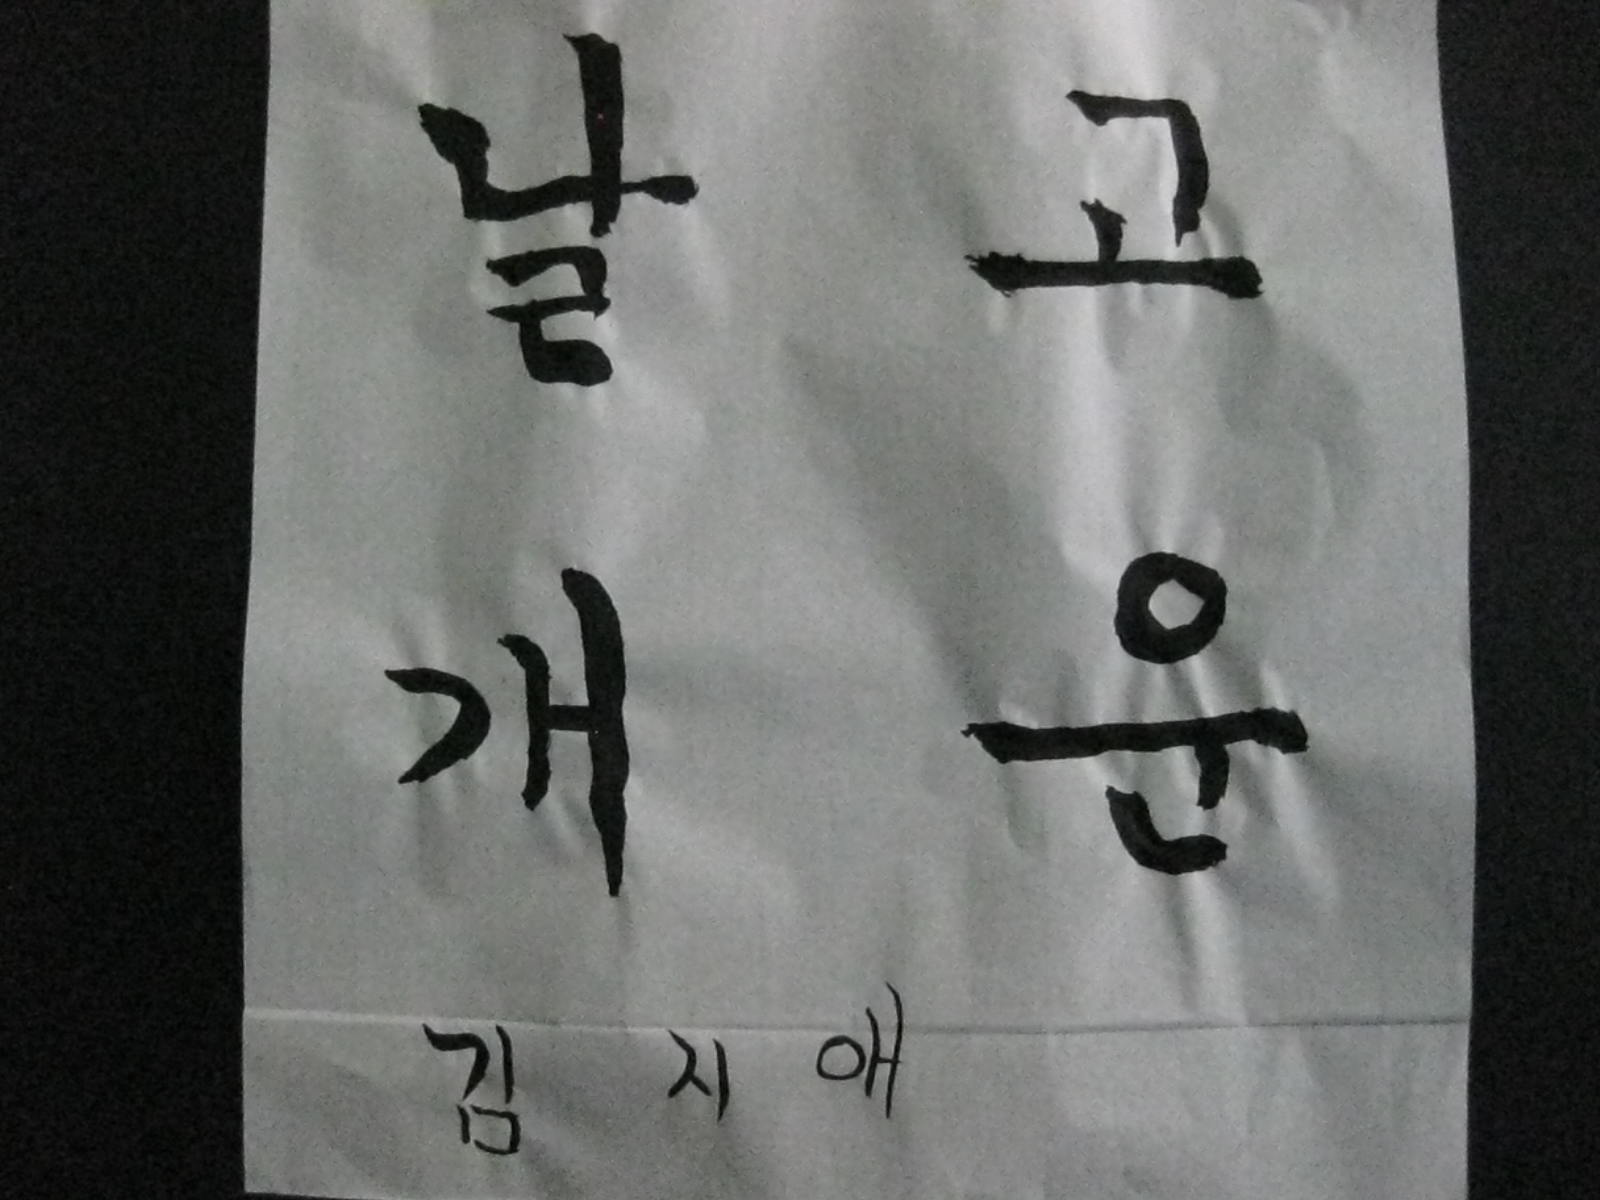 고운
날개
김지애